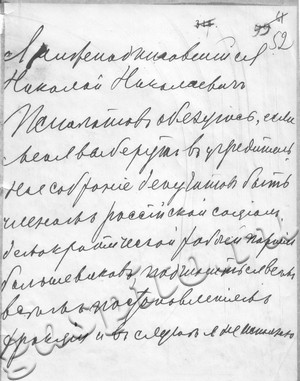 52
Я нижеподписавшийся
Николай Николаевич
обязуюсь, если
меня выберут в учредитель-
ное собрание депутатов быть
членом российской социал.
демократической рабочей партии
большевиков, подчиняться всем
постановлениям
фракции и в случае я не исполню